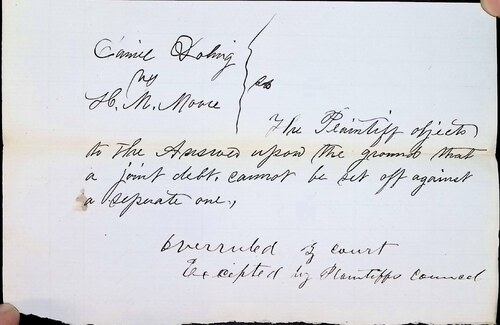 Daniel Dobig
vs
H. M. Moore
The Plaintiff objects
to the Answer upon the ground that
a joint debt, cannot be set off against
a seperate one.,
Overruled by court
Excepted by Plaintiffs Council